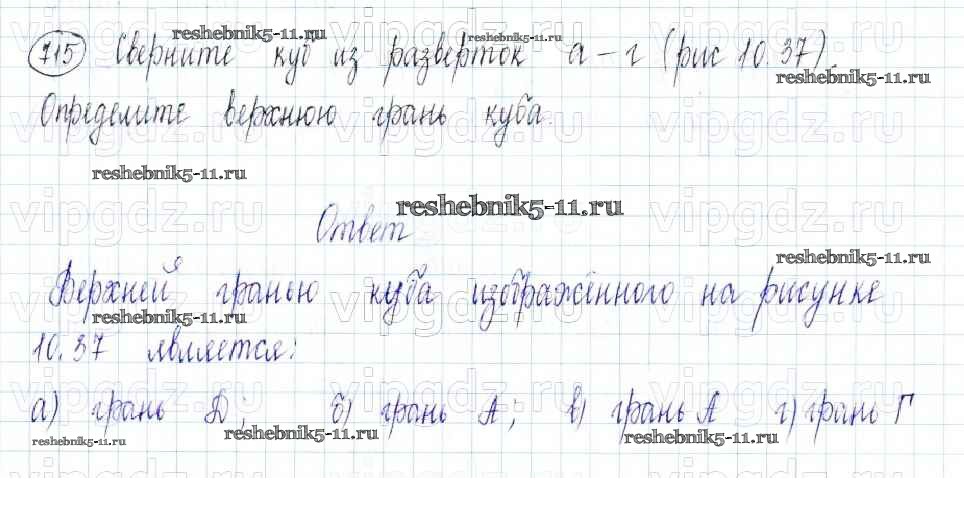 715 Сверните куб из разверток а - г (рис 10.37).
Определите верхнюю грань куба.
Ответ
Верхней гранью куба изображённого на рисунке
10.37 является:
а) грань D; б) грань А; в) грань А г) грань Г
reshebnik5-11.ru
reshebnik5-11.ru
reshebnik5-11.ru
reshebnik5-11.ru
reshebnik5-11.ru
reshebnik5-11.ru
reshebnik5-11.ru
reshebnik5-11.ru
reshebnik5-11.ru
reshebnik5-11.ru
vipgdz.ru